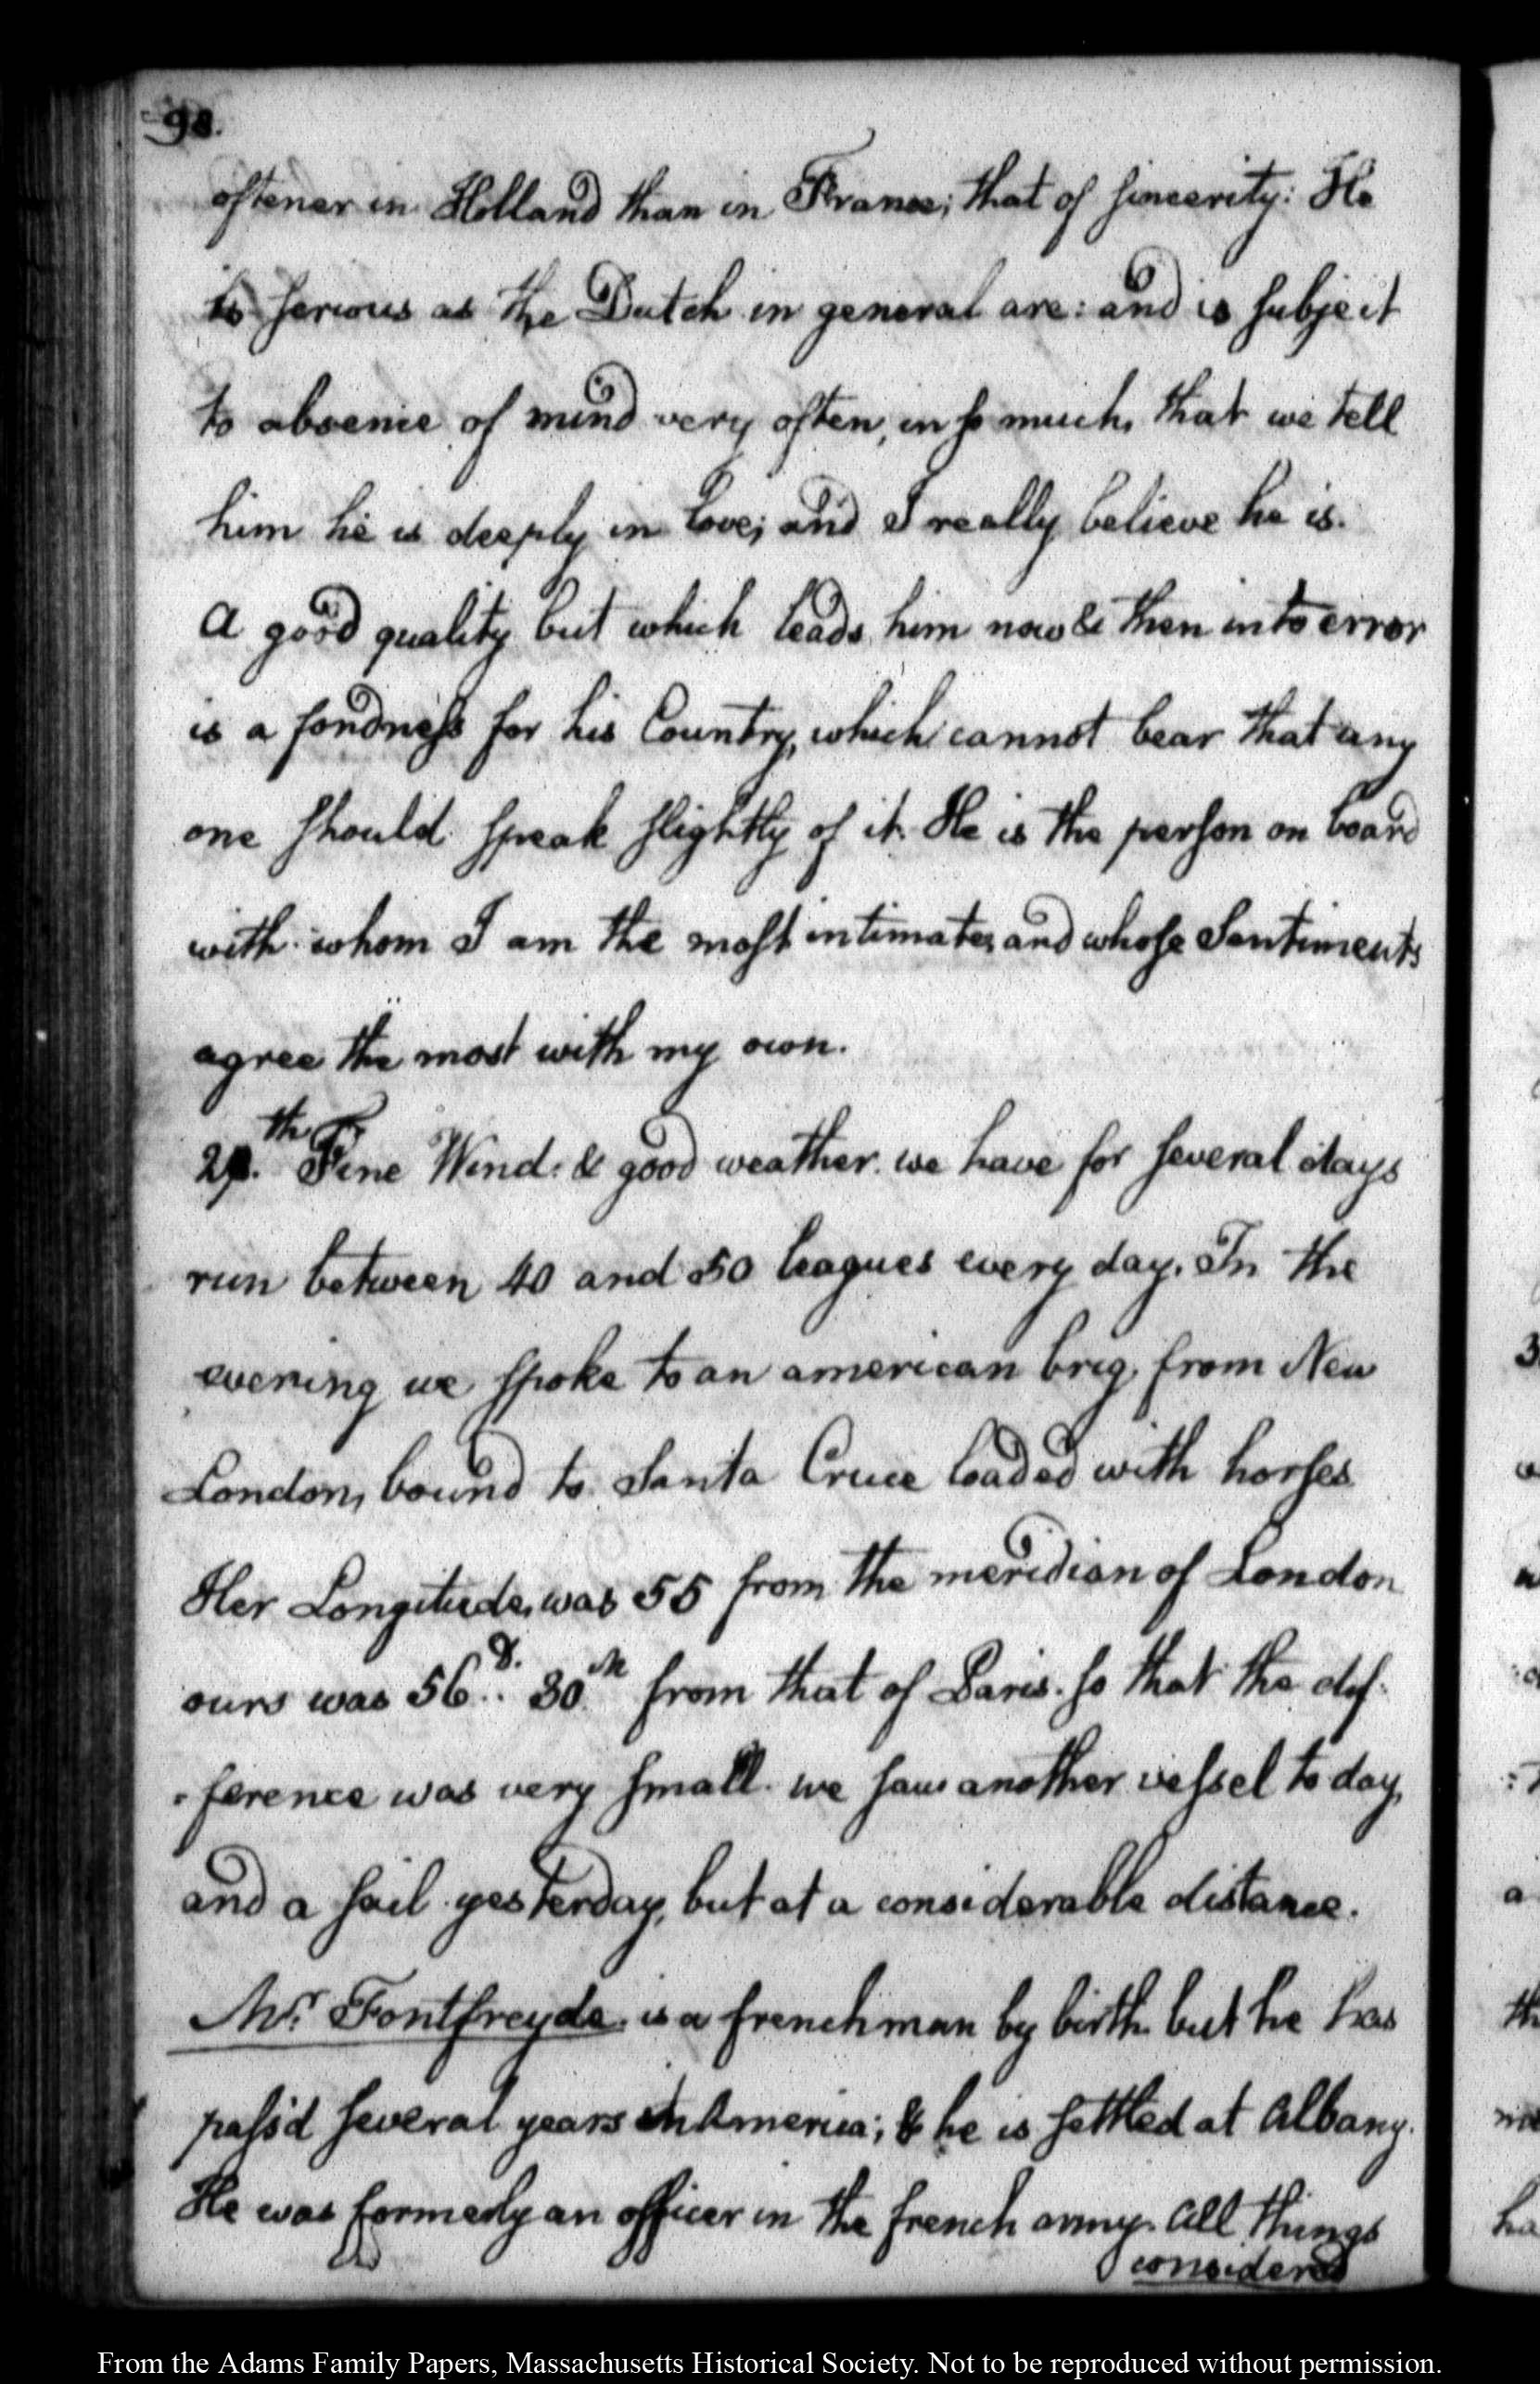 98.
oftener in Holland than in France; that of sincerity: He
is serious as the Dutch in general are: and is subject
to absence of mind very often, in so much, that we tell
him he is deeply in love; and I really believe he is.
A good quality but which leads him now & then into error
is a fondness for his Country, which cannot bear that any
one should speak slightly of it. He is the person on board
with whom I am the most intimate, and whose Sentiments
agree the most with my own.
th
Fine Wind. & good weather. we have for several days
run between 40 and 50 leagues every day. In the
evening we spoke to an american brig, from New
London, bound to Santa Cruce loaded with horses
Her Longitude, was 55 from the meridian of London
ours was 56.D. 30.M from that of Paris. so that the dif-
-ference was very small. we saw another vessel to day,
and a sail yesterday, but at a considerable distance.
Mr. Fontfreyde. is a frenchman by birth. but he has
pass'd several years in America; & he is settled at Albany.
He was formerly an officer in the french army. All things
considered
From the Adams Family Papers, Massachusetts Historical Society. Not to be reproduced without permission.